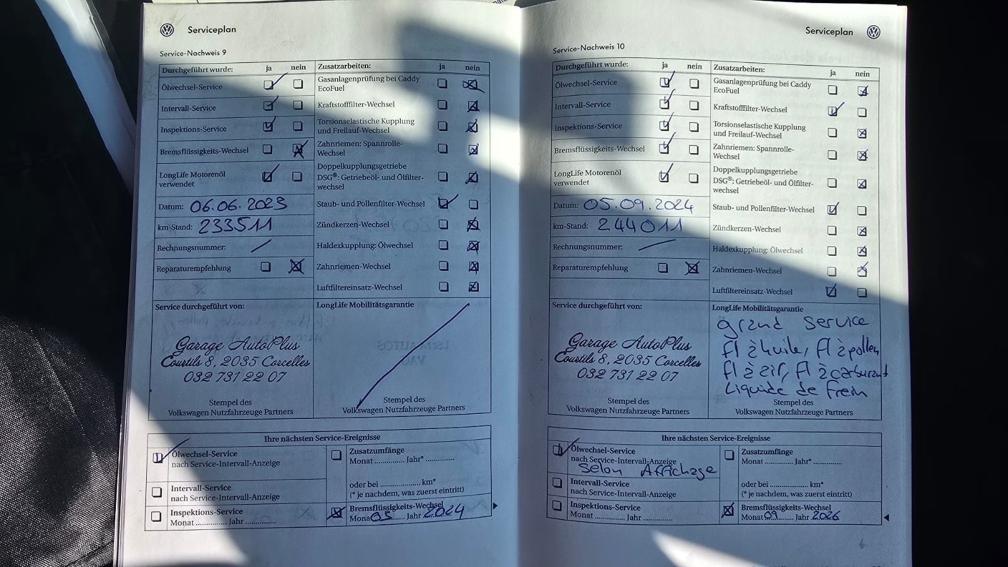 Serviceplan
Service-Nachweis 9
Durchgeführt wurde: ja nein
Ölwechsel-Service
Intervall-Service
Inspektions-Service
Bremsflüssigkeits-Wechsel
LongLife Motorenöl
verwendet
Datum: 06.06.2023
km-Stand: 233511
Rechnungsnummer:
Reparaturempfehlung
Zusatzarbeiten: ja nein
Gasanlagenprüfung bei Caddy
EcoFuel
Kraftstofffilter-Wechsel
Torsionselastische Kupplung
und Freilauf-Wechsel
Zahnriemen: Spannrolle-
Wechsel
Doppelkupplungsgetriebe
DSG®: Getriebeöl- und Ölfilter-
wechsel
Staub- und Pollenfilter-Wechsel
Zündkerzen-Wechsel
Haldexkupplung: Ölwechsel
Zahnriemen-Wechsel
Luftfiltereinsatz-Wechsel
Service durchgeführt von:
Garage AutoPlus
Courtils 8, 2035 Corcelles
032 731 22 07
Stempel des
Volkswagen Nutzfahrzeuge Partners
LongLife Mobilitätsgarantie
Stempel des
Volkswagen Nutzfahrzeuge Partners
Ihre nächsten Service-Ereignisse
Ölwechsel-Service
nach Service-Intervall-Anzeige
Intervall-Service
nach Service-Intervall-Anzeige
Inspektions-Service
Monat ............ Jahr ............
Zusatzumfänge
Monat ............ Jahr* ............
oder bei ............ km*
(* je nachdem, was zuerst eintritt)
Bremsflüssigkeits-Wechsel
Monat 05 Jahr 2024
Serviceplan
Service-Nachweis 10
Durchgeführt wurde: ja nein
Ölwechsel-Service
Intervall-Service
Inspektions-Service
Bremsflüssigkeits-Wechsel
LongLife Motorenöl
verwendet
Datum: 05.09.2024
km-Stand: 244011
Rechnungsnummer:
Reparaturempfehlung
Zusatzarbeiten: ja nein
Gasanlagenprüfung bei Caddy
EcoFuel
Kraftstofffilter-Wechsel
Torsionselastische Kupplung
und Freilauf-Wechsel
Zahnriemen: Spannrolle-
Wechsel
Doppelkupplungsgetriebe
DSG®: Getriebeöl- und Ölfilter-
wechsel
Staub- und Pollenfilter-Wechsel
Zündkerzen-Wechsel
Haldexkupplung: Ölwechsel
Zahnriemen-Wechsel
Luftfiltereinsatz-Wechsel
Service durchgeführt von:
Garage AutoPlus
Courtils 8, 2035 Corcelles
032 731 22 07
Stempel des
Volkswagen Nutzfahrzeuge Partners
LongLife Mobilitätsgarantie
grand service
fl à huile, fl à pollen
fl à air, fl à carburant
Liquide de frein
Stempel des
Volkswagen Nutzfahrzeuge Partners
Ihre nächsten Service-Ereignisse
Ölwechsel-Service
nach Service-Intervall-Anzeige
selon Affichage
Intervall-Service
nach Service-Intervall-Anzeige
Inspektions-Service
Monat ............ Jahr ............
Zusatzumfänge
Monat ............ Jahr* ............
oder bei ............ km*
(* je nachdem, was zuerst eintritt)
Bremsflüssigkeits-Wechsel
Monat 09 Jahr 2026